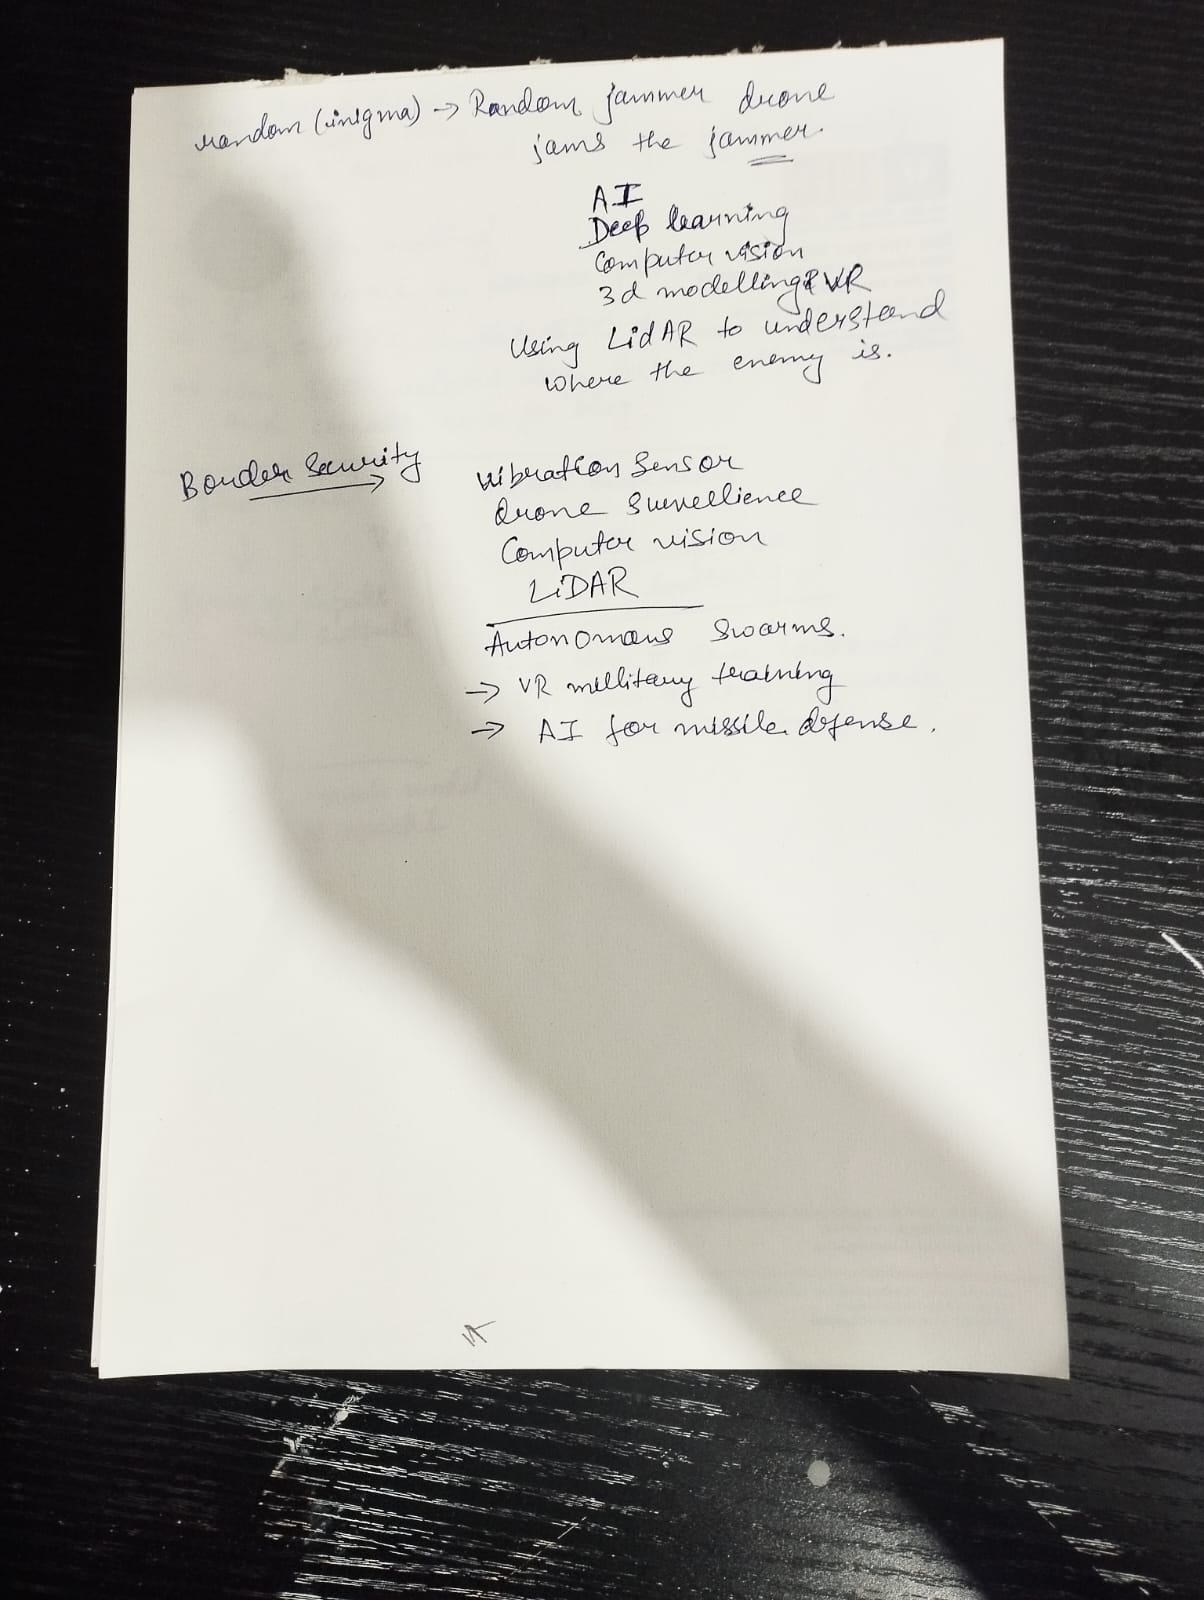 random (inigma) → Random jammer drone
jams the jammer.
AI
Deep learning
Computer vision
3d modelling & VR
Using LidAR to understand
where the enemy is.
Border Security
vibration sensor
drone survellience
Computer vision
LiDAR
Autonomous swarms.
→ VR millitary training
→ AI for missile defense.